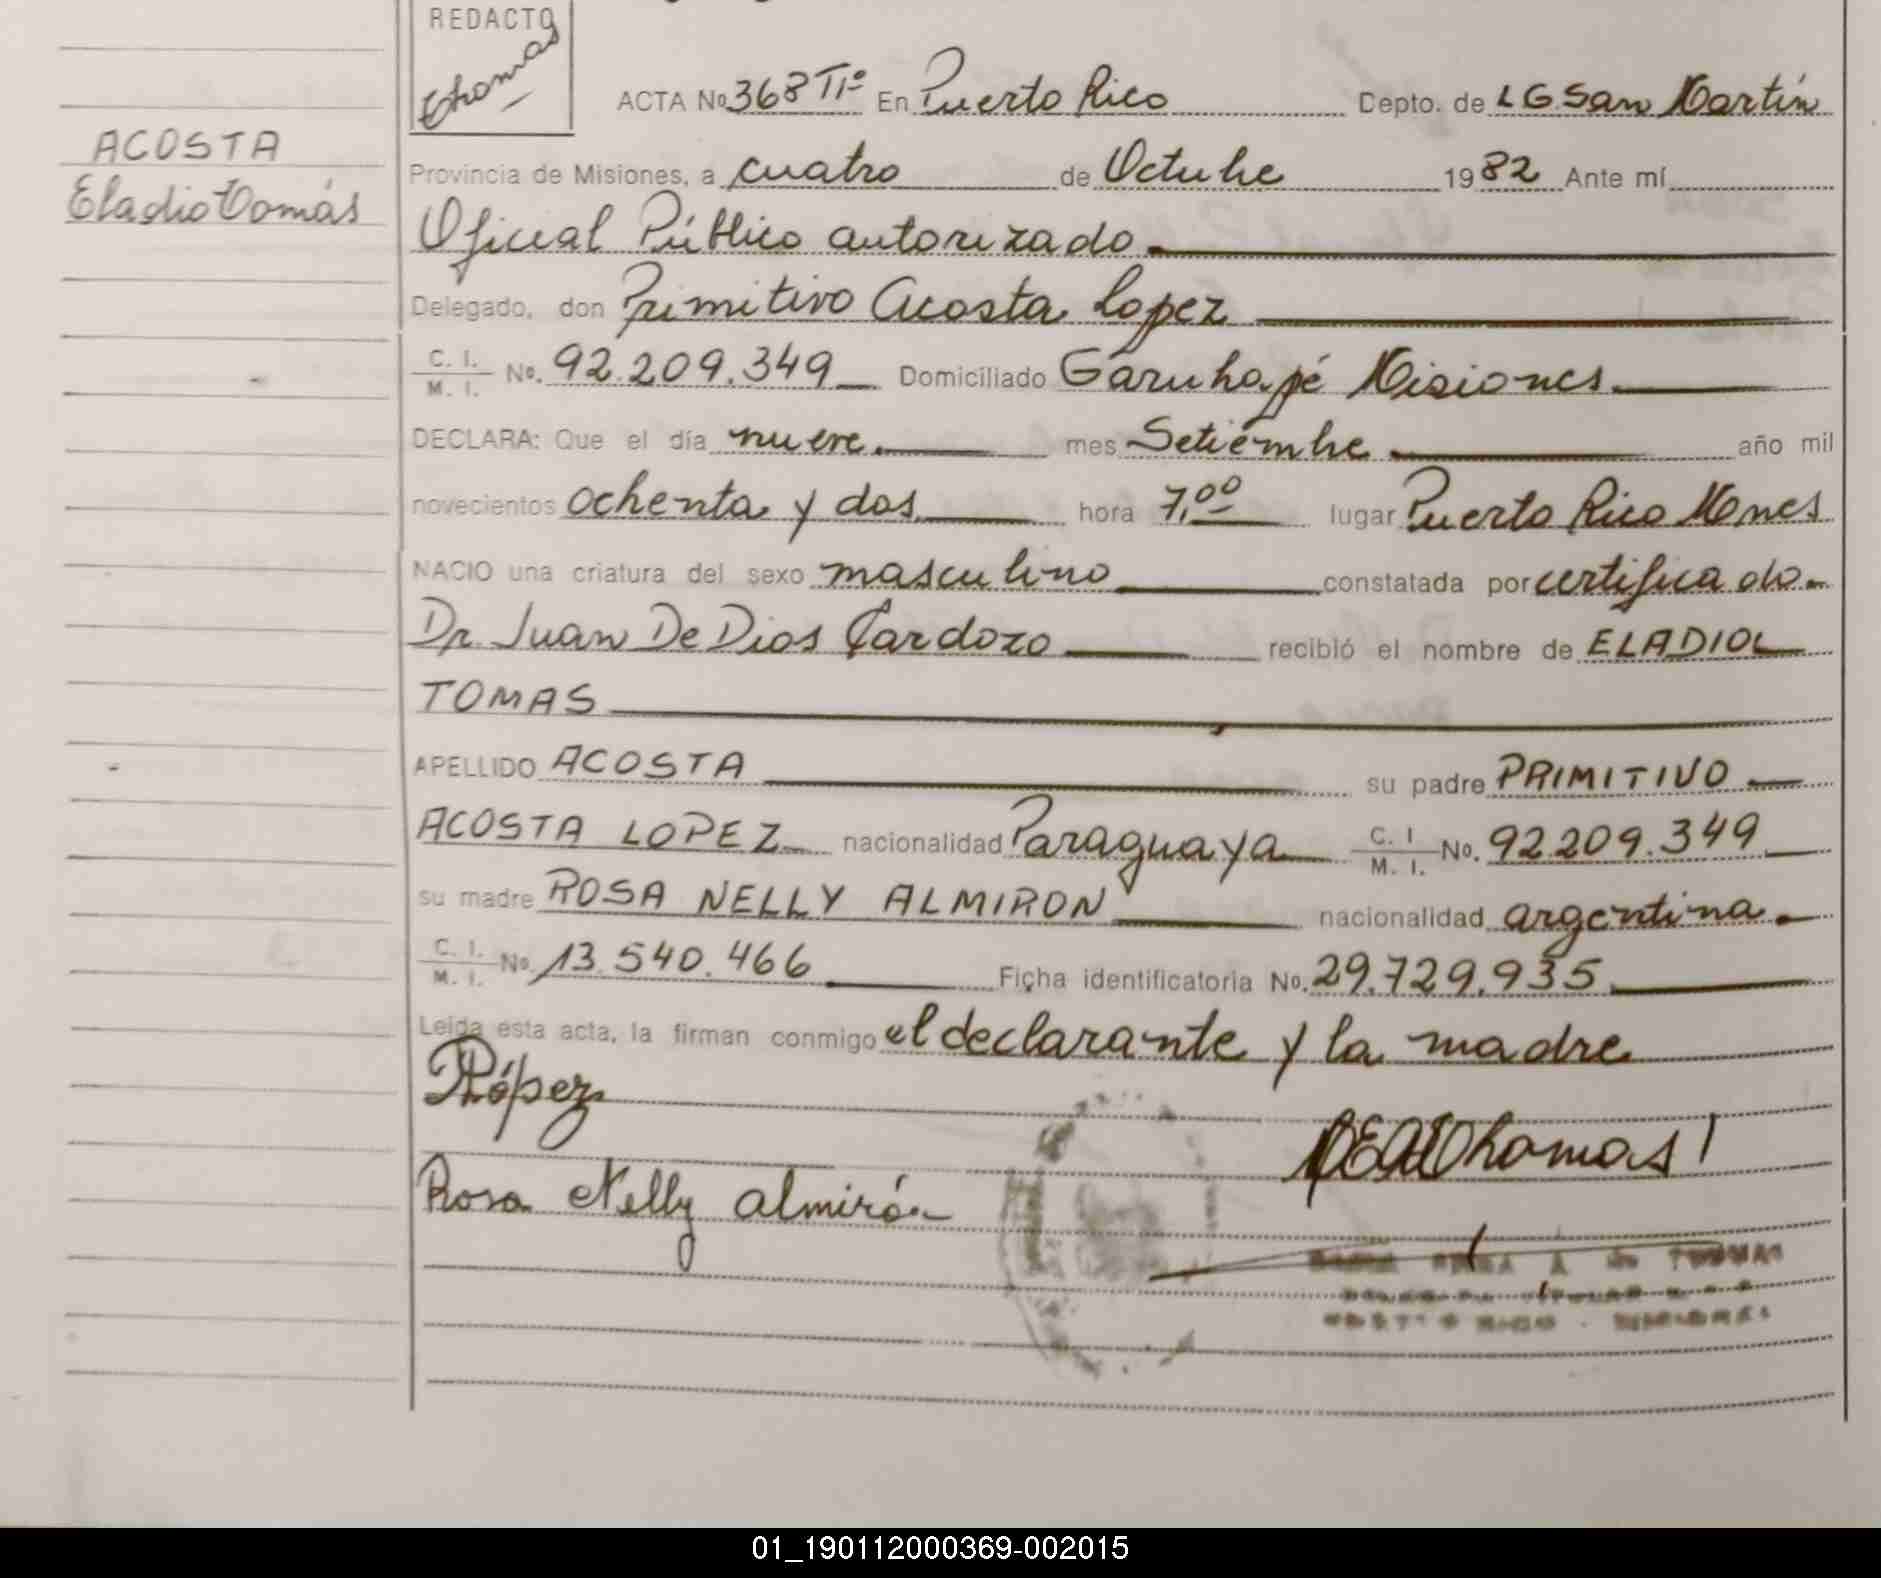 REDACTO
Thomas
ACTA No 368 Tº En Puerto Rico Depto. de L G San Martín
ACOSTA
Eladio Tomás
Provincia de Misiones, a cuatro de Octubre 1982 Ante mí
Oficial Público autorizado
Delegado, don Primitivo Acosta Lopez
C. I. M. I. No. 92.209.349 Domiciliado Garuhapé Misiones
DECLARA: Que el día nueve mes Setiembre año mil
novecientos ochenta y dos hora 7,00 lugar Puerto Rico Mones
NACIO una criatura del sexo masculino constatada por certificado
Dr. Juan De Dios Cardozo recibió el nombre de ELADIO
TOMAS
APELLIDO ACOSTA su padre PRIMITIVO
ACOSTA LOPEZ nacionalidad Paraguaya C. I M. I. No. 92.209.349
su madre ROSA NELLY ALMIRON nacionalidad argentina
C. I. M. I. No. 13.540.466 Ficha identificatoria No. 29.729.935
Leida esta acta, la firman conmigo el declarante y la madre
PLópez
Thomas
Rosa Nelly Almirón
01_190112000369-002015